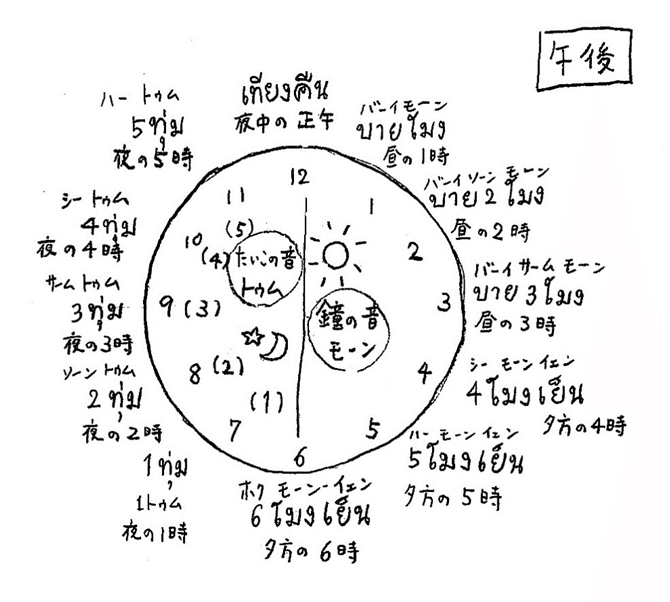 午後
เที่ยงคืน
夜中の正午
バーイモーン
บ่ายโมง
昼の1時
バーイソーンモーン
บ่าย 2 โมง
昼の2時
バーイサームモーン
บ่าย 3 โมง
昼の3時
シーモーンイェン
4 โมงเย็น
夕方の4時
ハーモーンイェン
5 โมงเย็น
夕方の5時
ホクモーンーイェン
6 โมงเย็น
夕方の6時
1 ทุ่ม
1トゥム
夜の1時
ソーントゥム
2 ทุ่ม
夜の2時
サームトゥム
3 ทุ่ม
夜の3時
シートゥム
4 ทุ่ม
夜の4時
ハートゥム
5 ทุ่ม
夜の5時
12
1
2
3
4
5
6
7
(1)
8 (2)
9 (3)
10 (4)
11 (5)
たいこの音
トゥム
鐘の音
モーン